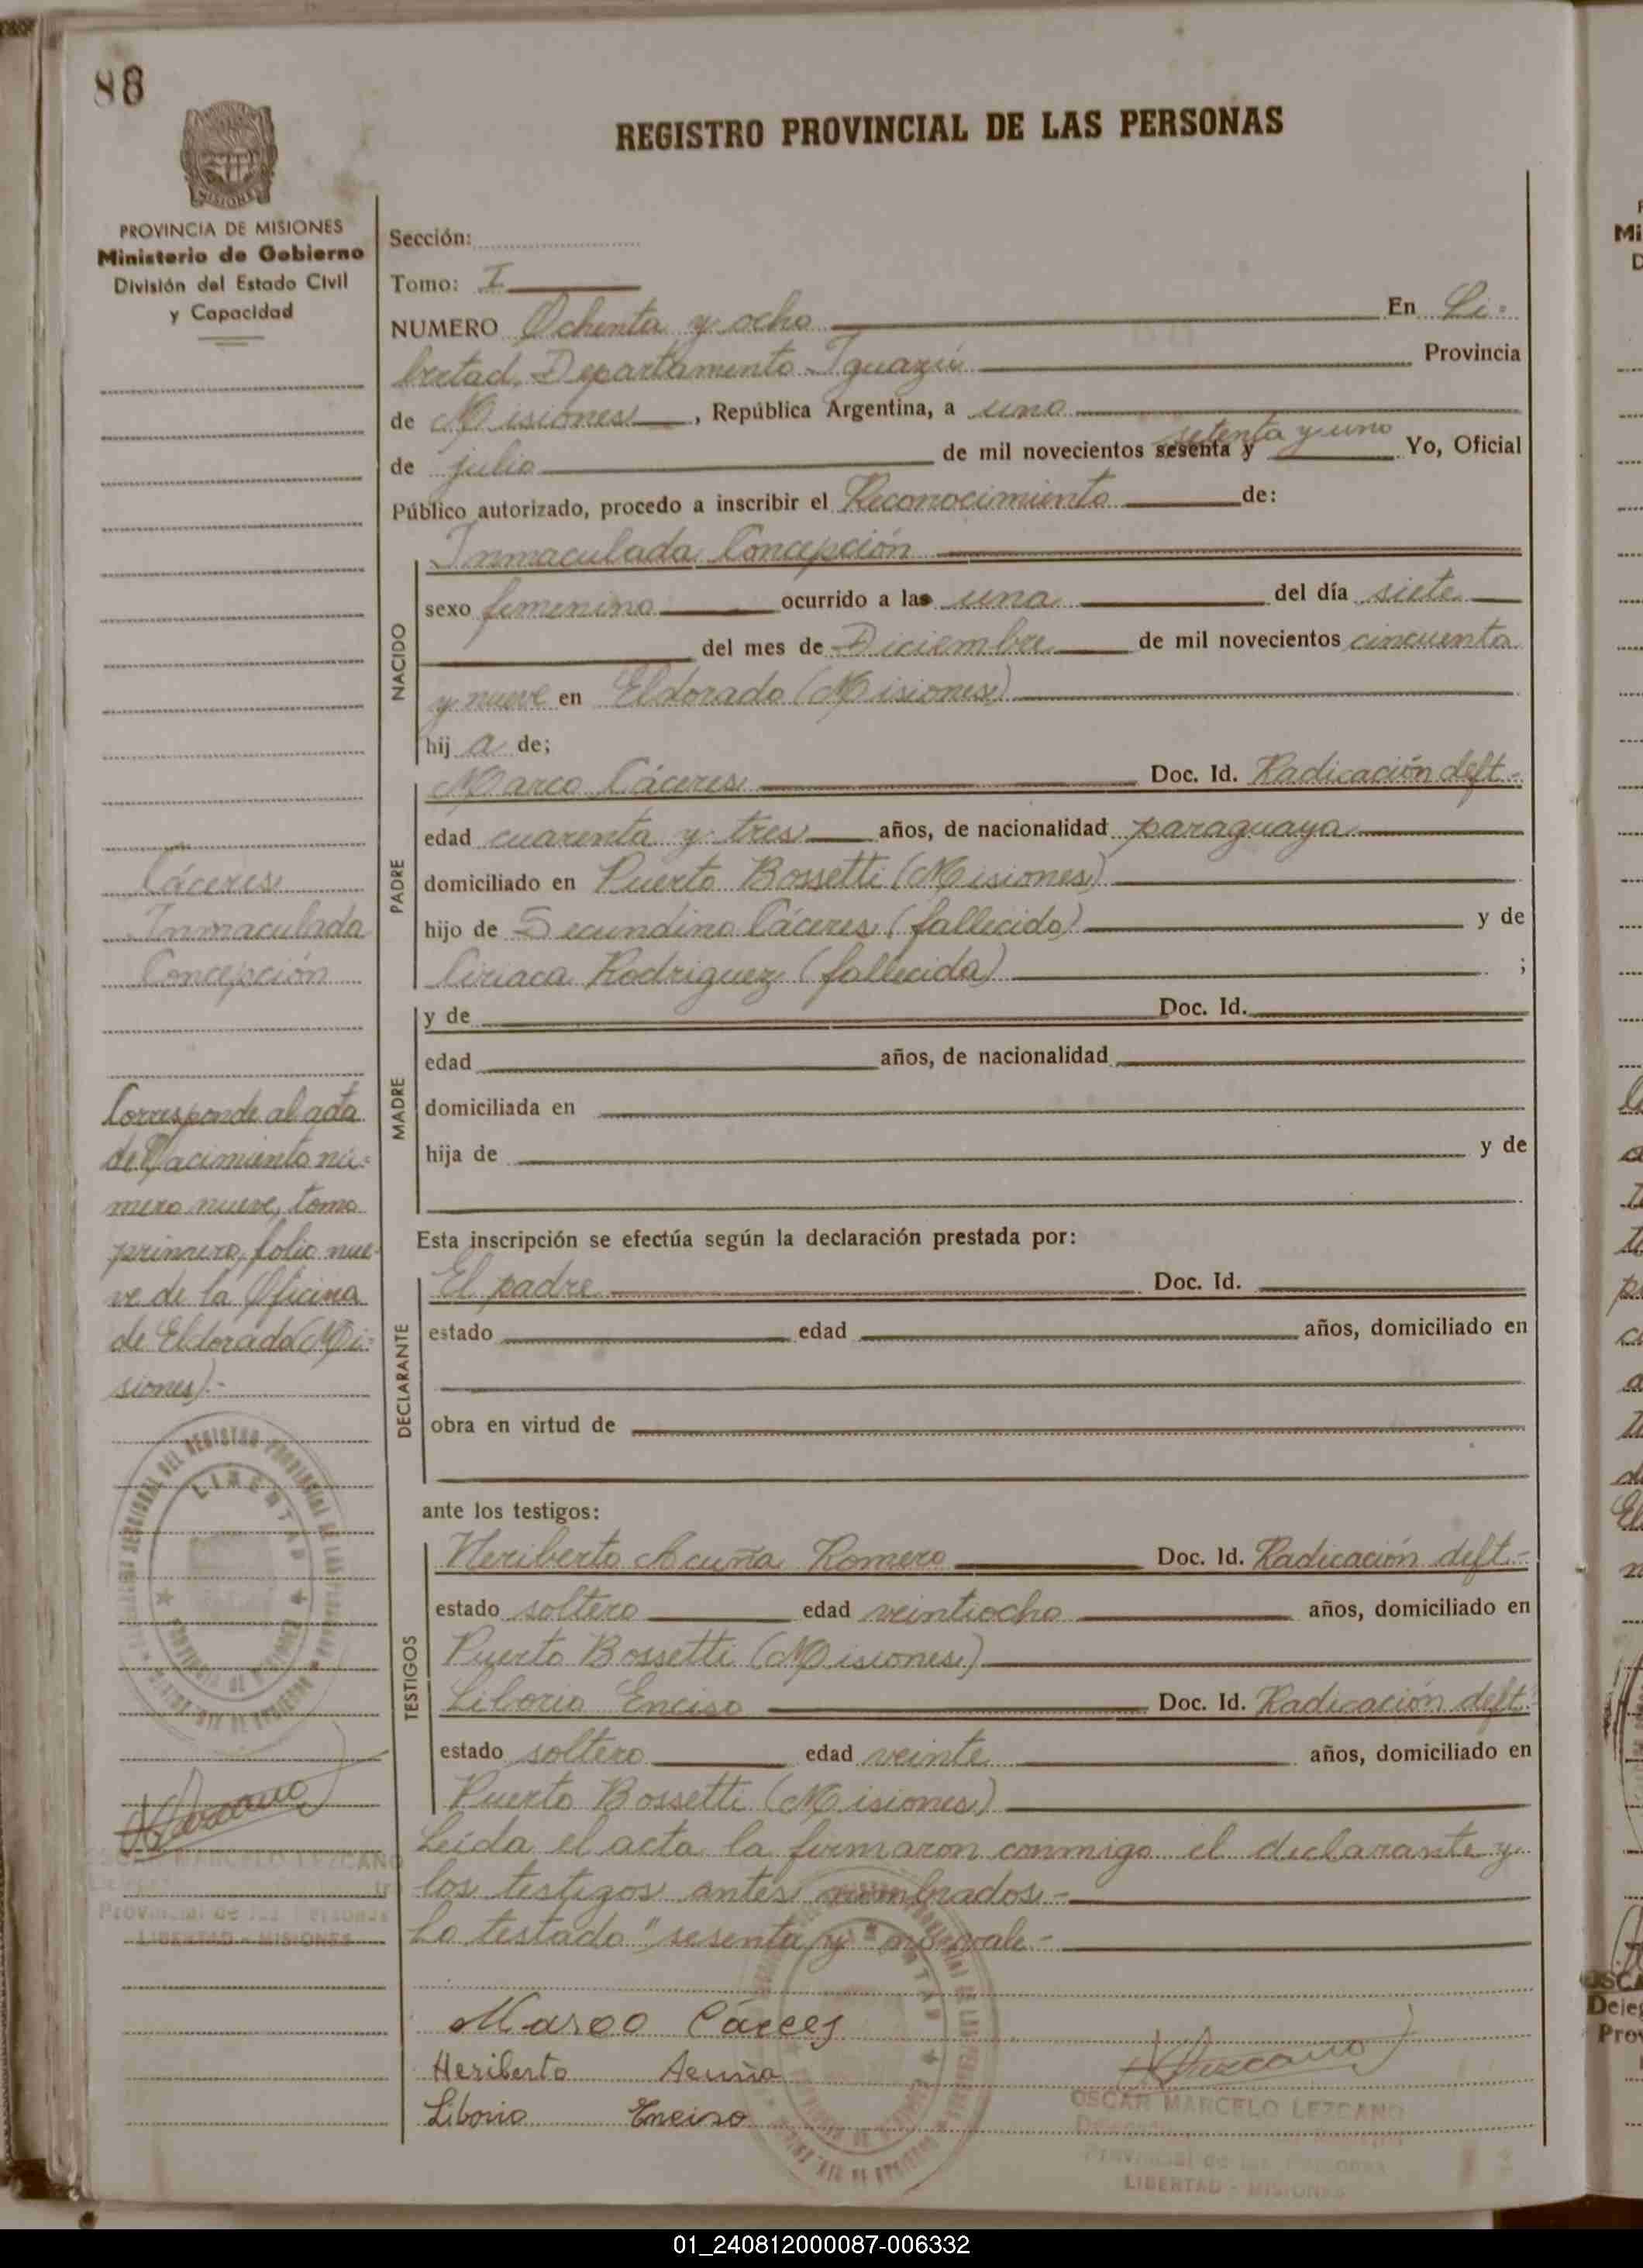 88
REGISTRO PROVINCIAL DE LAS PERSONAS
PROVINCIA DE MISIONES
Ministerio de Gobierno
División del Estado Civil
y Capacidad
Sección:
Tomo: I
NUMERO Ochenta y ocho En Li-
bertad, Departamento Iguazú Provincia
de Misiones, República Argentina, a uno
de julio de mil novecientos sesenta y setenta y uno Yo, Oficial
Público autorizado, procedo a inscribir el Reconocimiento de:
NACIDO
Inmaculada Concepción
sexo femenino ocurrido a las una del día siete
del mes de Diciembre de mil novecientos cincuenta
y nueve en Eldorado (Misiones)
hij a de;
PADRE
Marco Cáceres Doc. Id. Radicación deft.-
edad cuarenta y tres años, de nacionalidad paraguaya
domiciliado en Puerto Bossetti (Misiones)
hijo de Secundino Cáceres (fallecido) y de
Ciriaca Rodriguez (fallecida) ;
MADRE
y de Doc. Id.
edad años, de nacionalidad
domiciliada en
hija de y de
Esta inscripción se efectúa según la declaración prestada por:
DECLARANTE
El padre Doc. Id.
estado edad años, domiciliado en
obra en virtud de
ante los testigos:
TESTIGOS
Heriberto Acuña Romero Doc. Id. Radicación deft.-
estado soltero edad veintiocho años, domiciliado en
Puerto Bossetti (Misiones)
Liborio Enciso Doc. Id. Radicación deft.-
estado soltero edad veinte años, domiciliado en
Puerto Bossetti (Misiones)
Leída el acta la firmaron conmigo el declarante y
los testigos antes nombrados.-
Lo testado "sesenta y" no vale.-
Marco Cáceres
Heriberto Acuña
Liborio Enciso
Lezcano
OSCAR MARCELO LEZCANO
Provincial de las Personas
LIBERTAD - MISIONES
Cáceres
Inmaculada
Concepción
Corresponde al acta
de Nacimiento nú-
mero nueve, tomo
primero, folio nue-
ve de la Oficina
de Eldorado (Mi-
siones).-
LIBERTAD
Lezcano
MARCELO LEZCANO
Provincial de las Personas
LIBERTAD - MISIONES
01_240812000087-006332